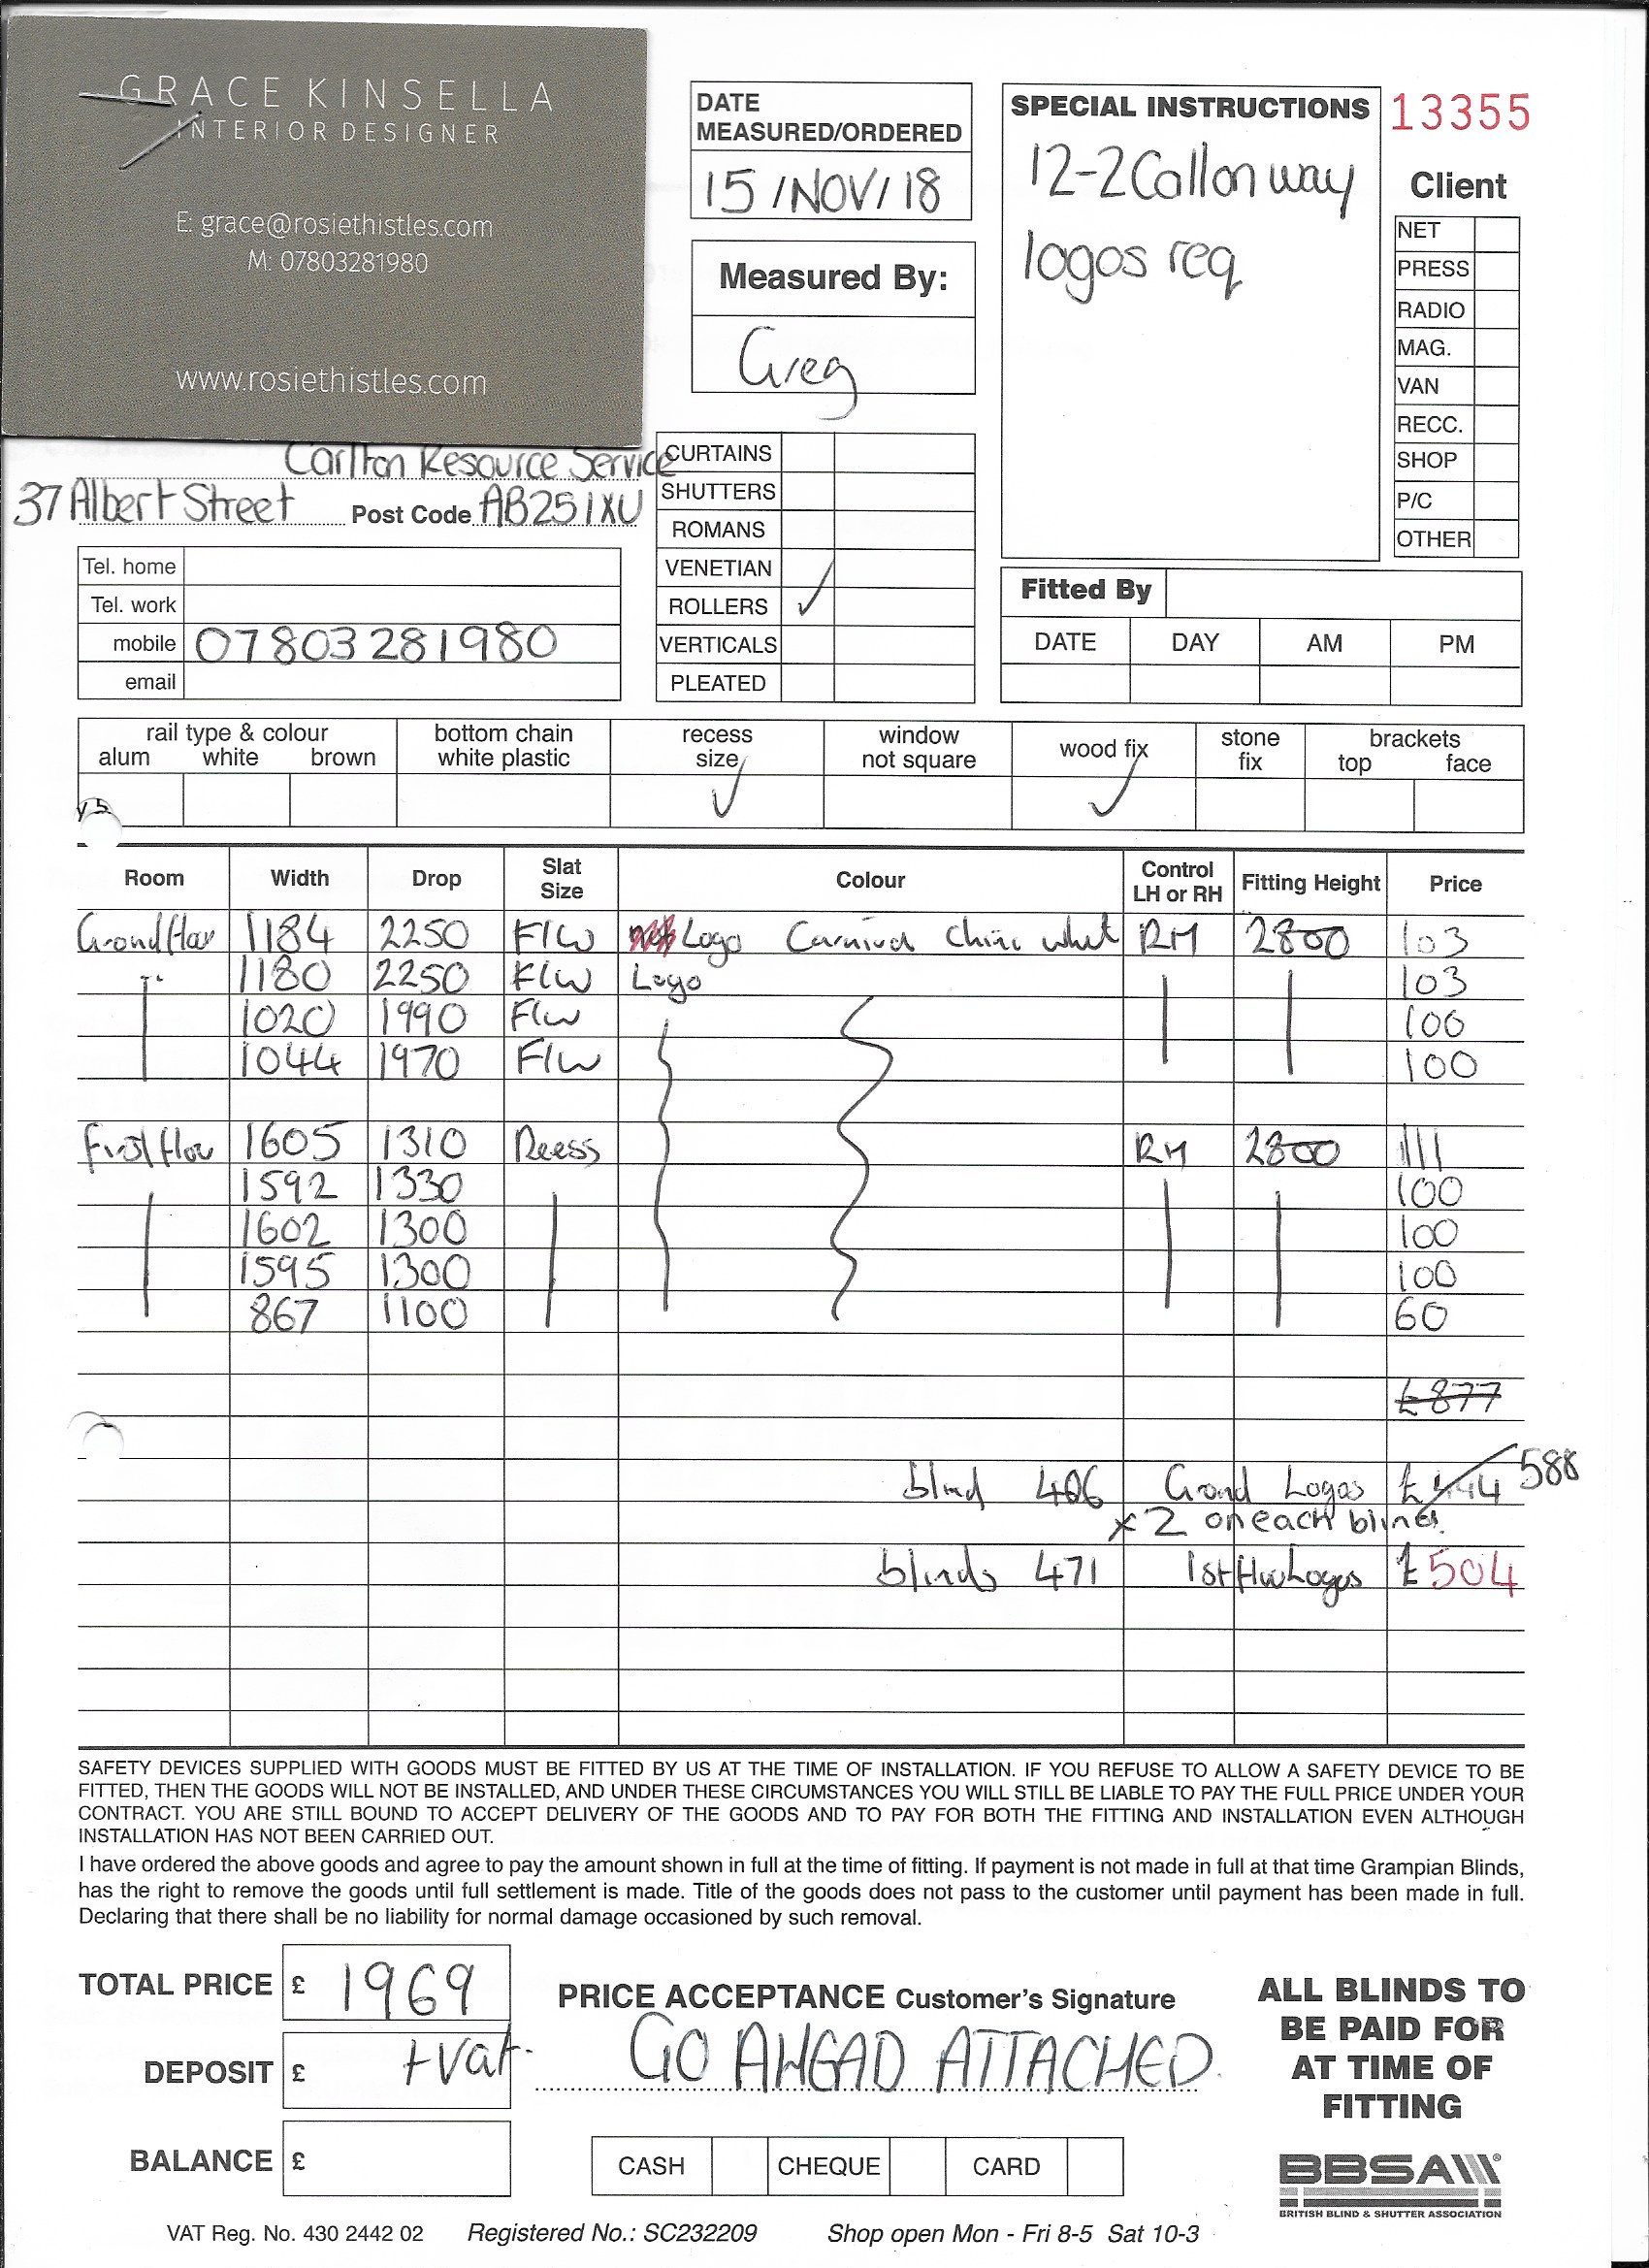 GRACE KINSELLA
INTERIOR DESIGNER
E: grace@rosiethistles.com
M: 07803281980
www.rosiethistles.com
DATE
MEASURED/ORDERED
15/NOV/18
Measured By:
Greg
SPECIAL INSTRUCTIONS
12-2 Callon way
logos req
13355
Client
NET
PRESS
RADIO
MAG.
VAN
RECC.
SHOP
P/C
OTHER
Carlton Resource Service
37 Albert Street Post Code AB25 1XU
Tel. home
Tel. work
mobile 07803281980
email
CURTAINS
SHUTTERS
ROMANS
VENETIAN
ROLLERS ✓
VERTICALS
PLEATED
Fitted By
DATE DAY AM PM
rail type & colour
alum white brown
bottom chain
white plastic
recess
size ✓
window
not square
wood fix ✓
stone
fix
brackets
top face
Room Width Drop Slat Size Colour Control LH or RH Fitting Height Price
Grondfloor 1184 2250 F/W Logo Carnival Chinc whit RH 2800 103
1180 2250 F/W Logo 103
1020 1990 F/W 100
1044 1970 F/W 100
First floor 1605 1310 Reess RH 2800 111
1592 1330 100
1602 1300 100
1595 1300 100
867 1100 60
£877
blind 406 Grond Logos £444 588
x 2 on each blind.
blinds 471 1st flw Logos £504
SAFETY DEVICES SUPPLIED WITH GOODS MUST BE FITTED BY US AT THE TIME OF INSTALLATION. IF YOU REFUSE TO ALLOW A SAFETY DEVICE TO BE
FITTED, THEN THE GOODS WILL NOT BE INSTALLED, AND UNDER THESE CIRCUMSTANCES YOU WILL STILL BE LIABLE TO PAY THE FULL PRICE UNDER YOUR
CONTRACT. YOU ARE STILL BOUND TO ACCEPT DELIVERY OF THE GOODS AND TO PAY FOR BOTH THE FITTING AND INSTALLATION EVEN ALTHOUGH
INSTALLATION HAS NOT BEEN CARRIED OUT.
I have ordered the above goods and agree to pay the amount shown in full at the time of fitting. If payment is not made in full at that time Grampian Blinds,
has the right to remove the goods until full settlement is made. Title of the goods does not pass to the customer until payment has been made in full.
Declaring that there shall be no liability for normal damage occasioned by such removal.
TOTAL PRICE £ 1969
DEPOSIT £ +vat.
BALANCE £
PRICE ACCEPTANCE Customer's Signature
GO AHEAD ATTACHED.
CASH CHEQUE CARD
ALL BLINDS TO
BE PAID FOR
AT TIME OF
FITTING
BBSA
BRITISH BLIND & SHUTTER ASSOCIATION
VAT Reg. No. 430 2442 02 Registered No.: SC232209 Shop open Mon - Fri 8-5 Sat 10-3